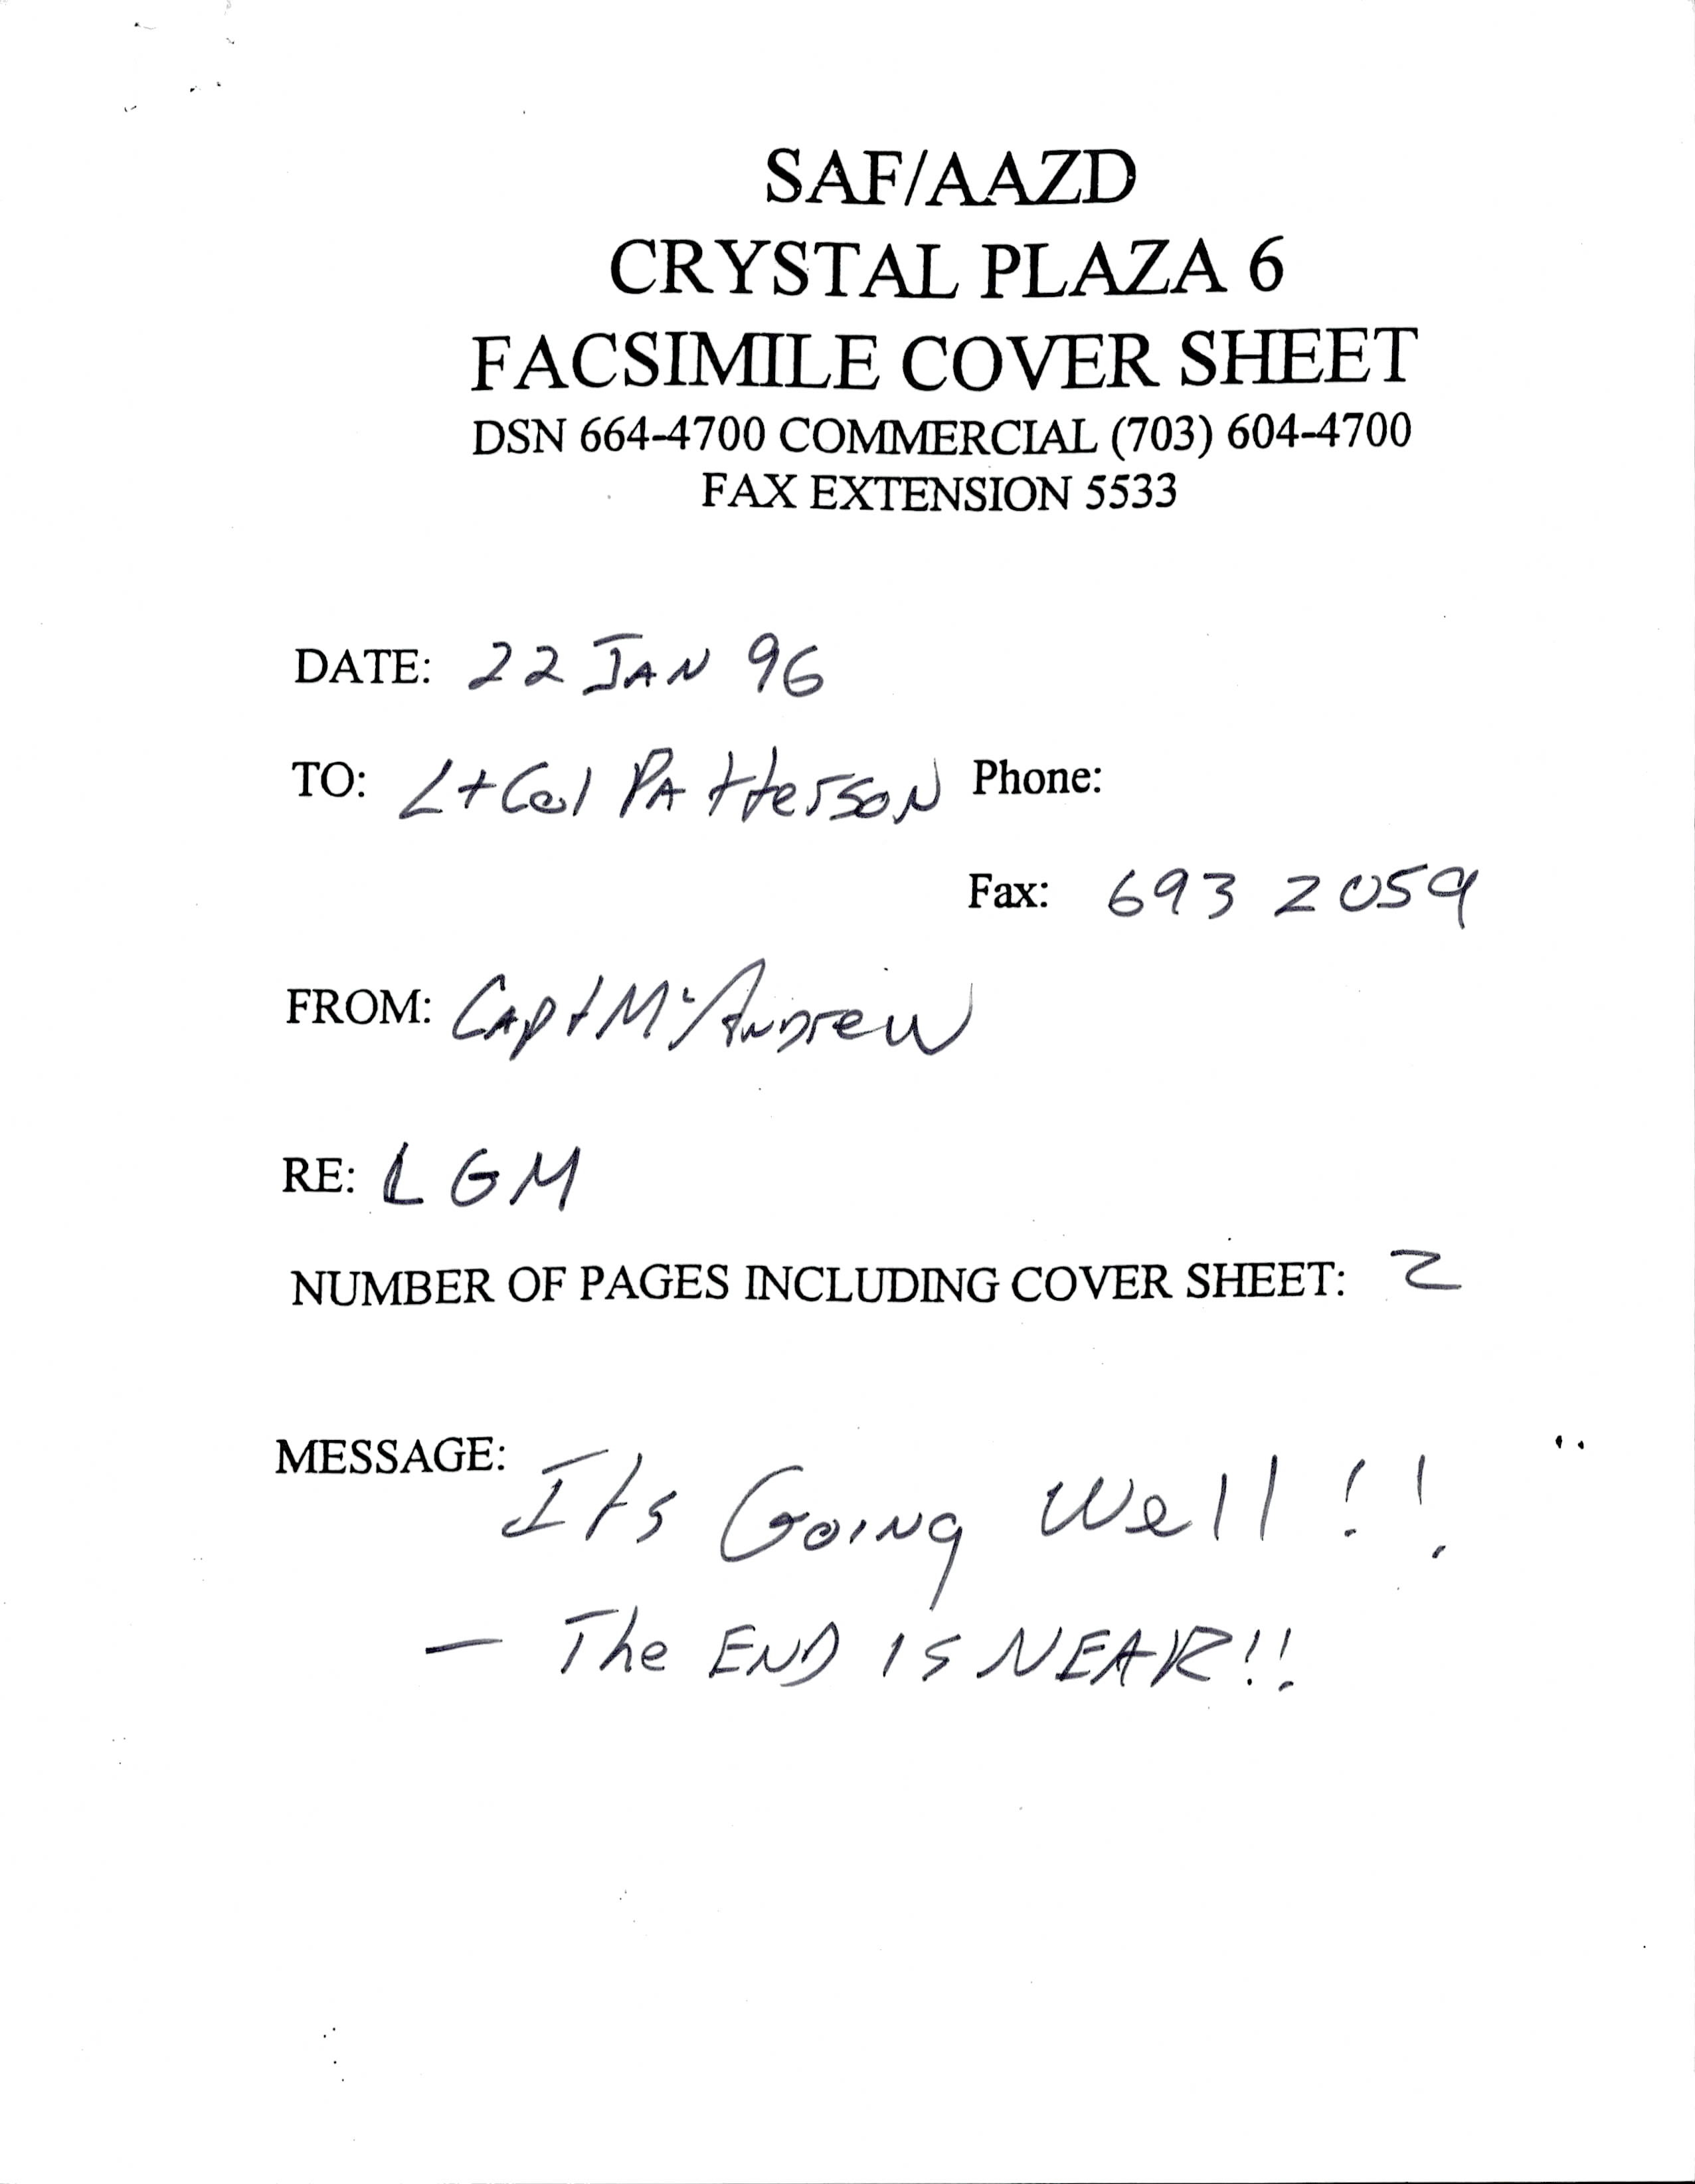 SAF/AAZD
CRYSTAL PLAZA 6
FACSIMILE COVER SHEET
DSN 664-4700 COMMERCIAL (703) 604-4700
FAX EXTENSION 5533
DATE: 22 JAN 96
TO: Lt Col PAtterson Phone:
Fax: 693 2059
FROM: Capt McAndrew
RE: LGM
NUMBER OF PAGES INCLUDING COVER SHEET: 2
MESSAGE: Its Going Well!!
— The END IS NEAR!!